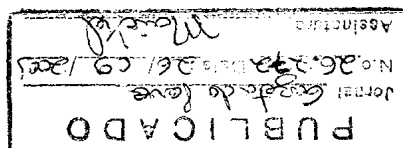 PUBLICADO
Jornal Gazeta do Povo
N.o 26.272 Data 26 / 09 / 2003
Assinatura